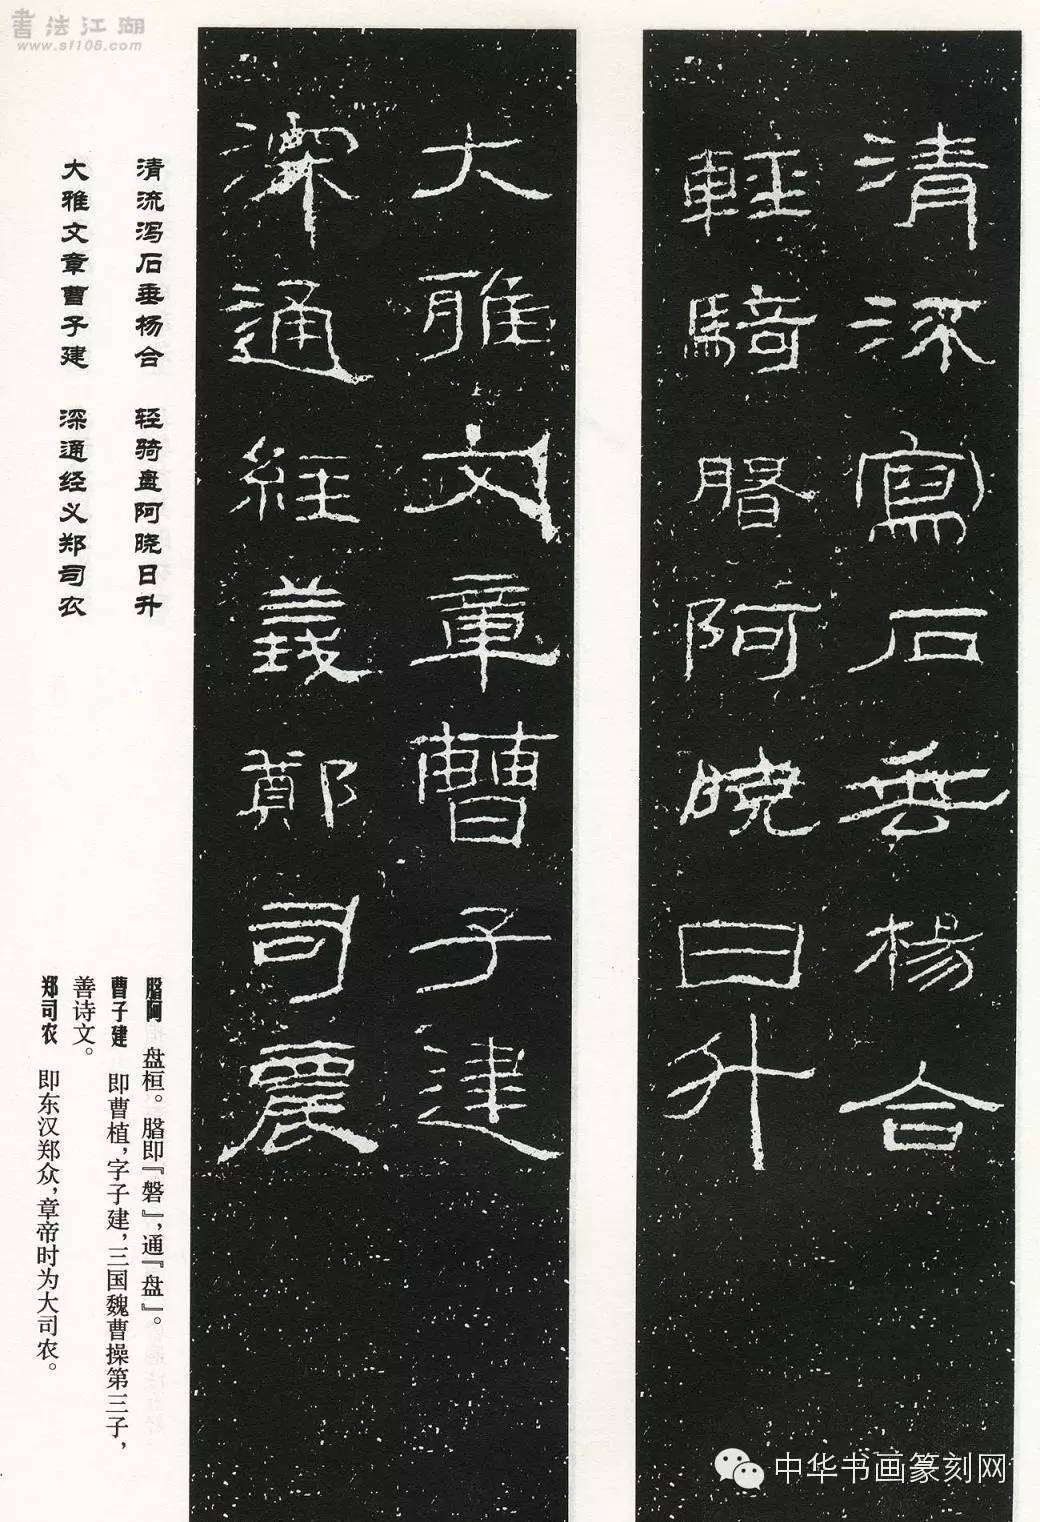 書法江湖
www.sf108.com
清流寫石垂楊合
輕騎䐗阿曉日升
大雅文章曹子建
深通經義鄭司農
清流泻石垂杨合 轻骑盘阿晓日升
大雅文章曹子建 深通经义郑司农
阿 盘桓。即『磐』,通『盘』。
曹子建 即曹植,字子建,三国魏曹操第三子,
善诗文。
郑司农 即东汉郑众,章帝时为大司农。
中华书画篆刻网